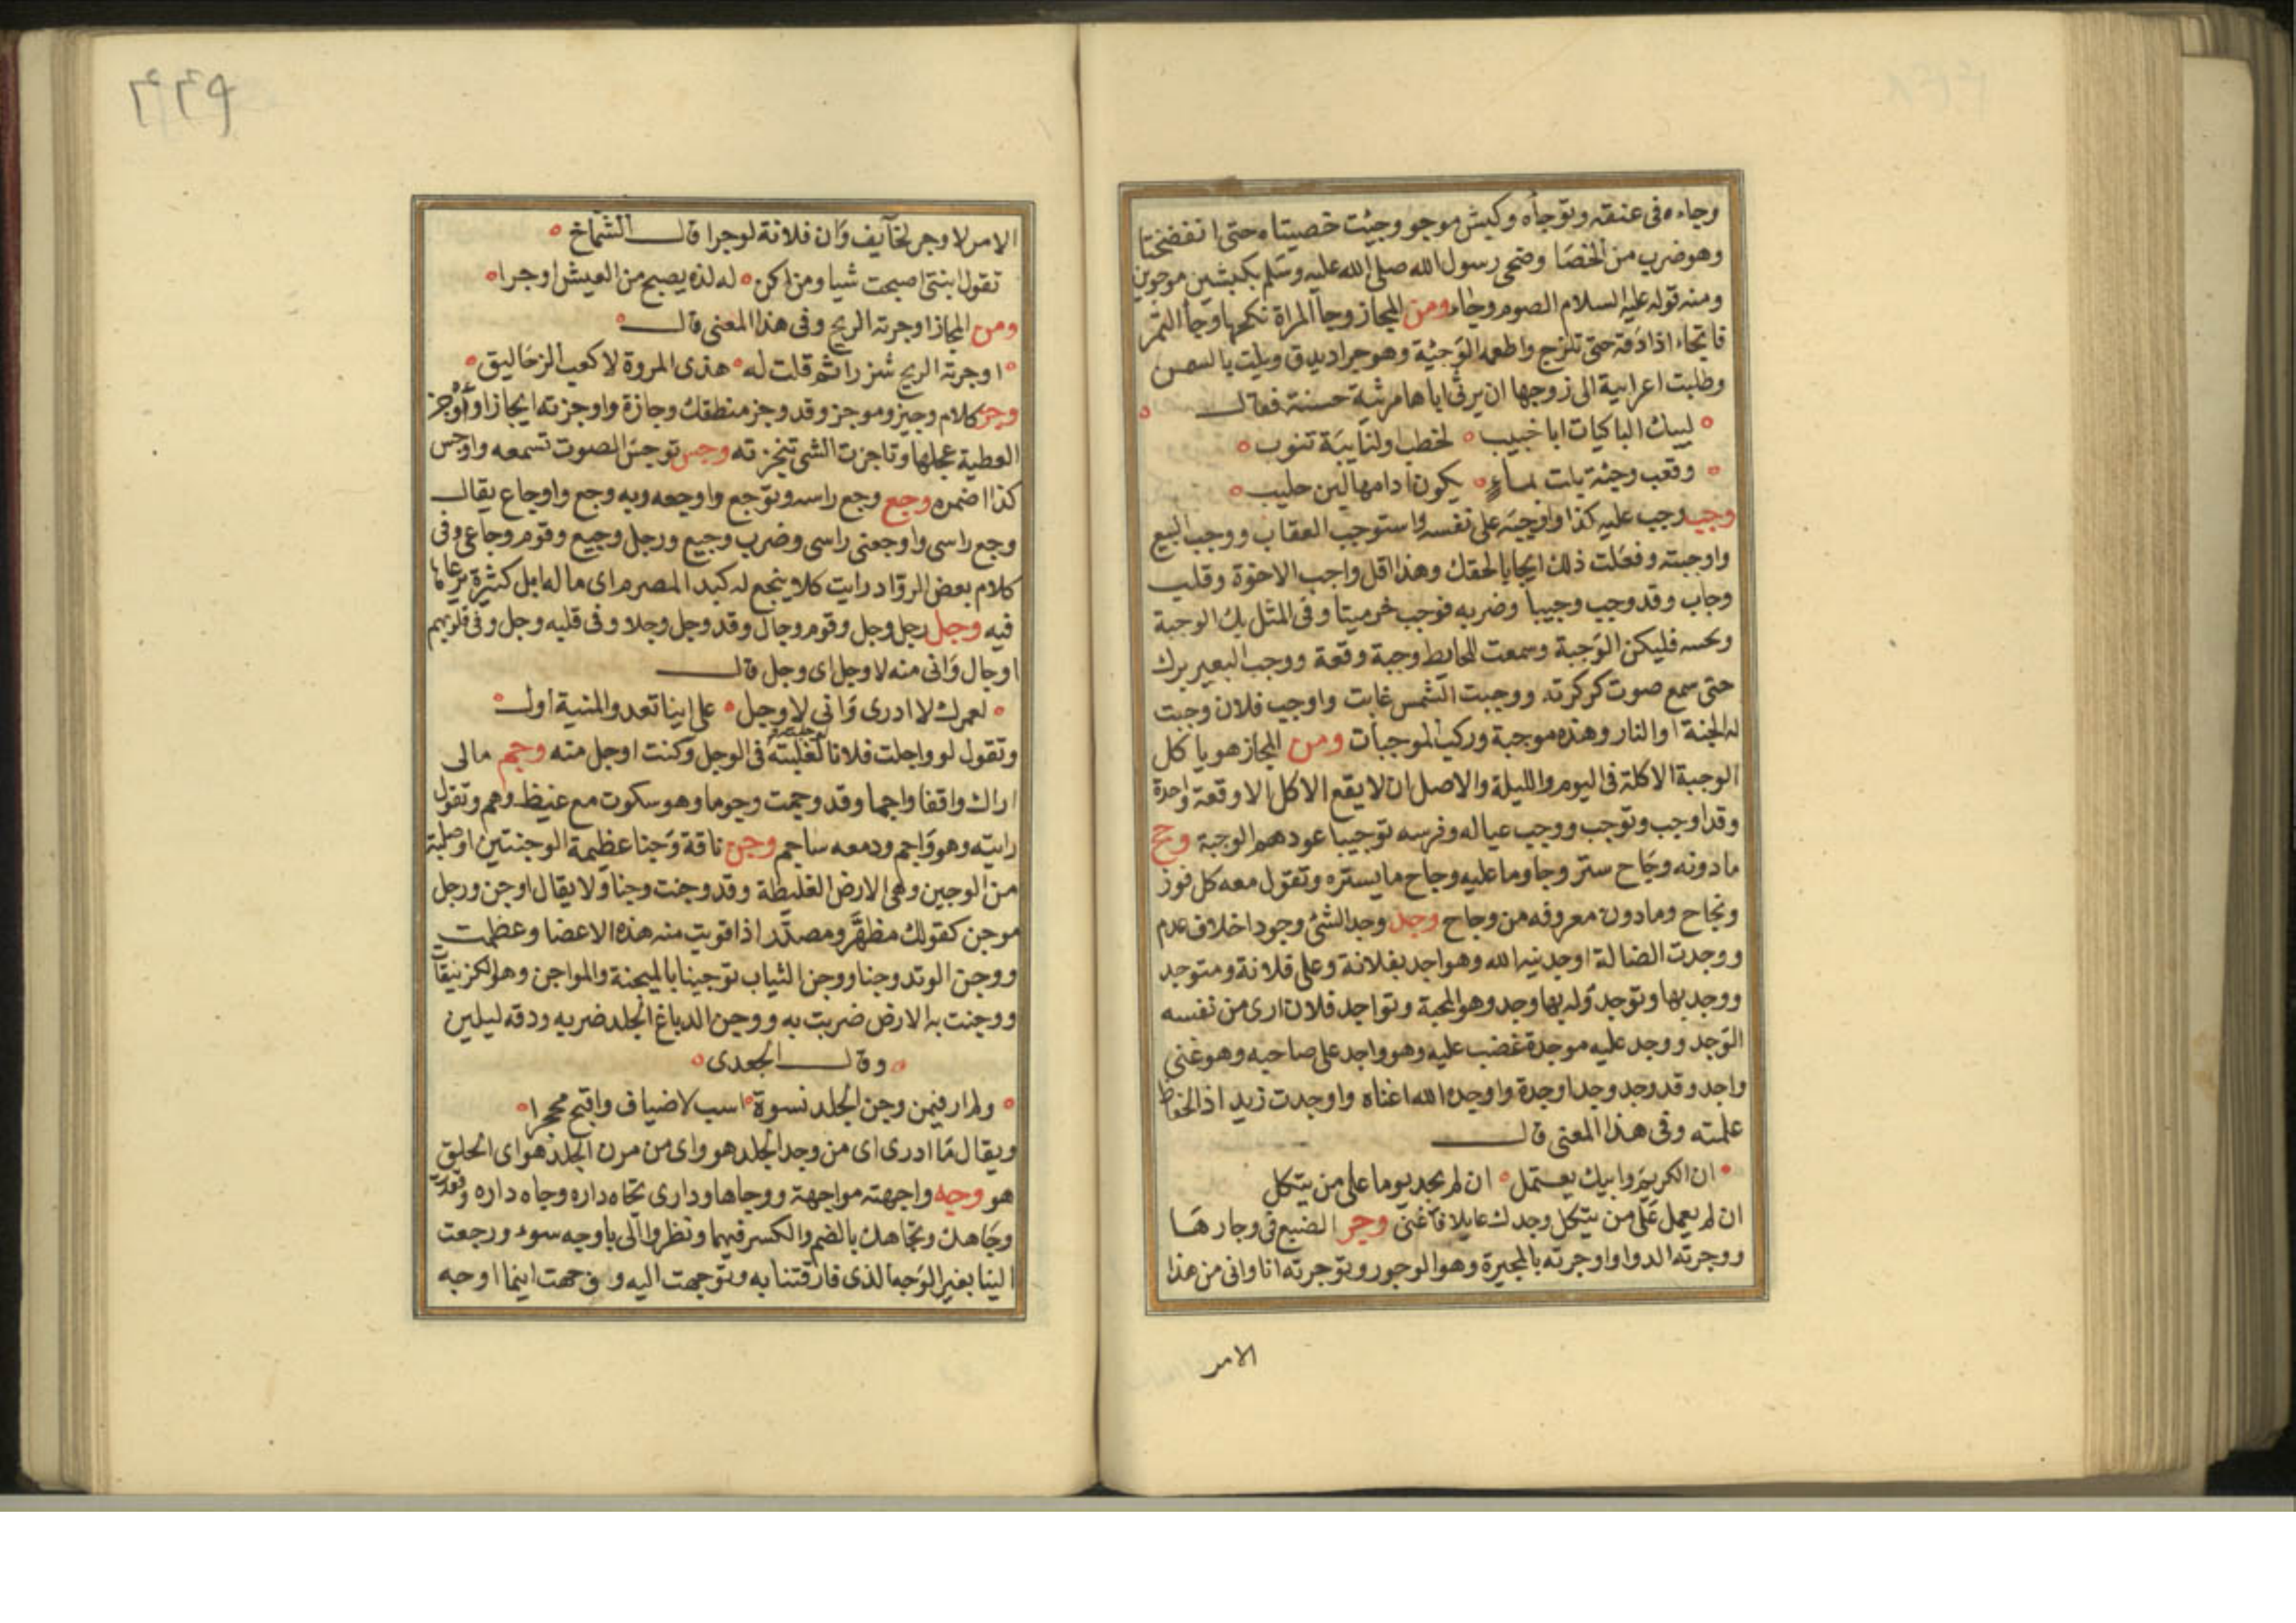 وجاءه فى عنقه وتوجأه وكبش موجو وجيت خصيتاه حتى انفضختا
وهو ضرب من الخصا وضحى رسول الله صلى الله عليه وسلم بكبشين موجوين
ومنه قوله عليه السلام الصوم وجاء ومن المجاز وجا المراة نكحها ووجأ التمر
فاتجاء اذا دقه حتى تلزج واطعمه الوجيئة وهو جراد يدق ويلت بالسمن
وطلبت اعرابية الى زوجها ان يرثى اباها مرثية حسنة فقال
لبيك الباكيات ابا خبيب لخطب اولنايبة تنوب
وقعب وجئة بلت بماء يكون ادامها لبن حليب
وجب وجب عليه كذا واوجبه على نفسه واستوجب العقاب ووجب البيع
واوجبته وفعلت ذلك ايجابا لحقك وهذا اقل واجب الاخوة وقلب
وجاب وقد وجب وجيبا وضربه فوجب خر ميتا وفى المثل بك الوجبة
وبحسبه فليكن الوجبة وسمعت للحايط وجبة وقعة ووجب البعير برك
حتى سمع صوت كركرته ووجبت الشمس غابت واوجب فلان وجبت
له الجنة او النار وهذه موجبة وركب الموجبات ومن المجاز هو ياكل
الوجبة الاكلة فى اليوم والليلة والاصل ان لا يقع الاكل الا وقعة واحدة
وقد اوجب وتوجب ووجب عياله وفرسه توجيبا عودهم الوجبة وجح
ما دونه وجاح ستر وجا وما عليه وجاح ما يستره وتقول معه كل فوز
ونجاح وما دون معروفه من وجاح وجد وجد الشئ وجودا خلاف عدم
ووجدت الضالة اوجدنيه الله وهو اجد بفلانة وعلى فلانة ومتوجد
ووجد بها وتوجد وله بها وجد وهو المحبة وتواجد فلان ارى من نفسه
الوجد ووجد عليه موجدة غضب عليه وهو واجد على صاحبه وهو غنى
واجد وقد وجد وجدا وجدة واوجده الله اغناه واوجدت زيدا ذا الحفاظ
علمته وفى هذا المعنى قال
ان الكريم وابيك يعتمل ان لم يجد يوما على من يتكل
ان لم يعمل على من يتكل وجدك عايلا فأغنى وجر الضبع فى وجارها
ووجرته الدوا واوجرته بالمجيرة وهو الوجور وتوجرته انا وانى من هذا
الامر
٤٤٩
الامر لاوجر لخآيف وان فلانة لوجرا قال الشماخ
تقول ابنتى اصبحت شيبا ومن اكن له لذه يصبح من العيش اوجرا
ومن المجاز اوجرته الريح وفى هذا المعنى قال
اوجرته الريح شزرا ثم قلت له هذى المروة لا كعب الزحاليق
وجز كلام وجيز وموجز وقد وجز منطقك وجازة واوجزته ايجازا واوجز
العطية عجلها وتاجزت الشى تنجزته وجس توجس الصوت تسمعه واوجس
كذا اضمره وجع وجع راسه وتوجع واوجعه وبه وجع واوجاع يقال
وجع راسى واوجعنى راسى وضرب وجيع ورجل وجيع وقوم وجاعى وفى
كلام بعض الرواد رايت كلا ينجع له كبد المصرم اى ماله ابل كثيرة يرعاها
فيه وجل رجل وجل وقوم وجال وقد وجل وجلا وفى قلبه وجل وفى قلوبهم
اوجال وانى منه لاوجل اى وجل قال
لعمرك لا ادرى وانى لاوجل على اينا تعد والمنية اول
وتقول لو واجلت فلانا لغلبته فى الوجل وكنت اوجل منه وجم مالى
اراك واقفا واجما وقد وجمت وجوما وهو سكوت مع غيظ وهم وتقول
رايته وهو واجم ودمعه ساجم وجن ناقة وجنا عظيمة الوجنتين او صلبة
من الوجين وهى الارض الغليظة وقد وجنت وجنا ولا يقال اوجن ورجل
موجن كقولك مظهر ومصدر اذا قويت منه هذه الاعضا وعظمت
ووجن الوتد وجنا ووجن الثياب توجينا بالميجنة والمواجن وهو الكزنيقات
ووجنت به الارض ضربت به ووجن الدباغ الجلد ضربه ودقه ليلين
وقال الجعدى
ولم ار فيمن وجن الجلد نسوة اسب لاضياف واقبح محجرا
ويقال ما ادرى اى من وجد الجلد هو واى من مرن الجلد هو اى الخلق
هو وجه واجهته مواجهة ووجاها ودارى تجاه داره وجاه داره وقعدت
وجاهك وتجاهك بالضم والكسر فيهما ونظروا الى باوجه سوء ورجعت
الينا بغير الوجه الذى فارقتنا به وتوجهت اليه ووجهت اينما اوجه